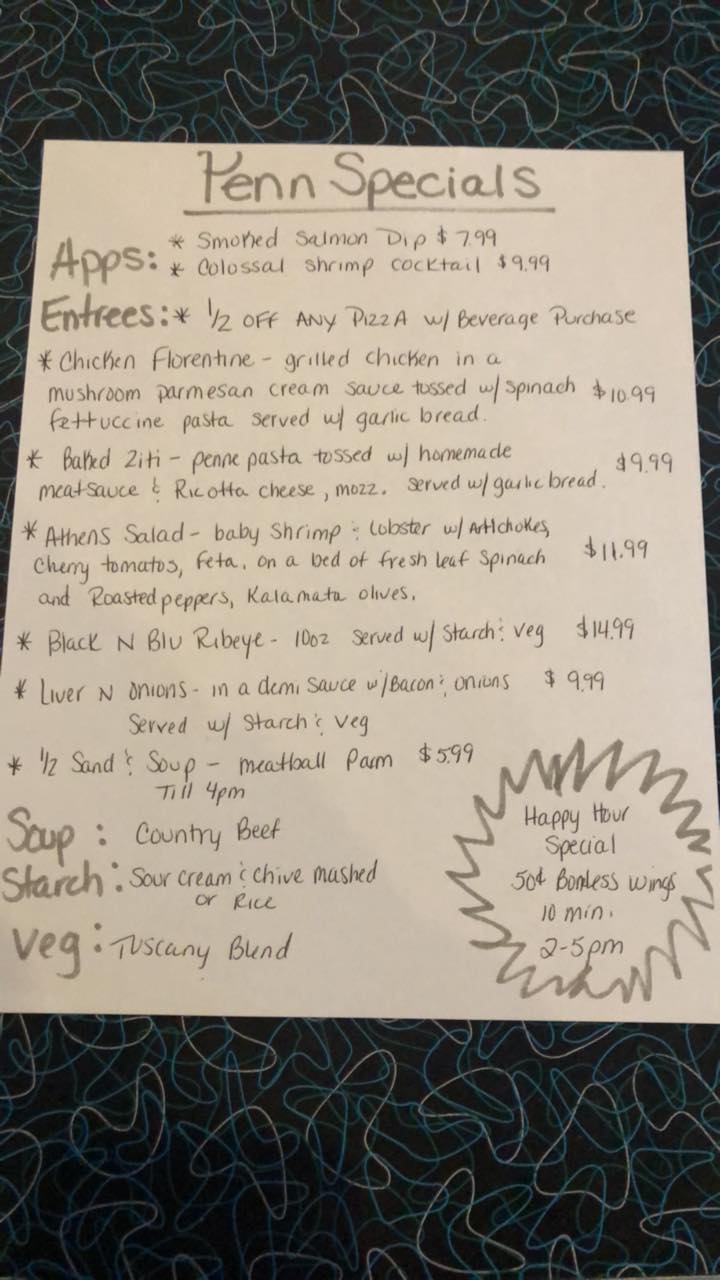 Penn Specials
Apps: * Smoked Salmon Dip $7.99
* Colossal shrimp cocktail $9.99
Entrees: * 1/2 OFF ANY PIZZA w/ Beverage Purchase
* Chicken Florentine - grilled chicken in a
mushroom parmesan cream sauce tossed w/ spinach $10.99
fettuccine pasta served w/ garlic bread.
* Baked Ziti - penne pasta tossed w/ homemade $9.99
meatsauce & Ricotta cheese, mozz. served w/ garlic bread.
* Athens Salad - baby shrimp & Lobster w/ Artichokes,
Cherry tomatos, feta. on a bed of fresh leaf spinach $11.99
and Roasted peppers, Kalamata olives.
* Black N Blu Ribeye - 10oz Served w/ Starch & veg $14.99
* Liver N onions - in a demi sauce w/ Bacon & onions $9.99
Served w/ Starch & veg
* 1/2 Sand & Soup - meatball Parm $5.99
Till 4pm
Soup: Country Beef
Starch: Sour cream & chive mashed
or Rice
Veg: Tuscany Blend
Happy Hour
Special
50¢ Bonless wings
10 min.
2-5pm